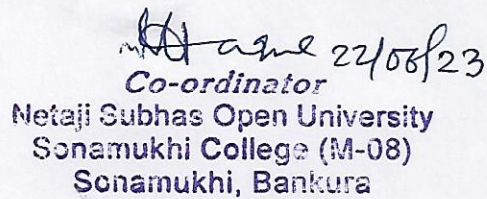 22/06/23
Co-ordinator
Netaji Subhas Open University
Sonamukhi College (M-08)
Sonamukhi, Bankura